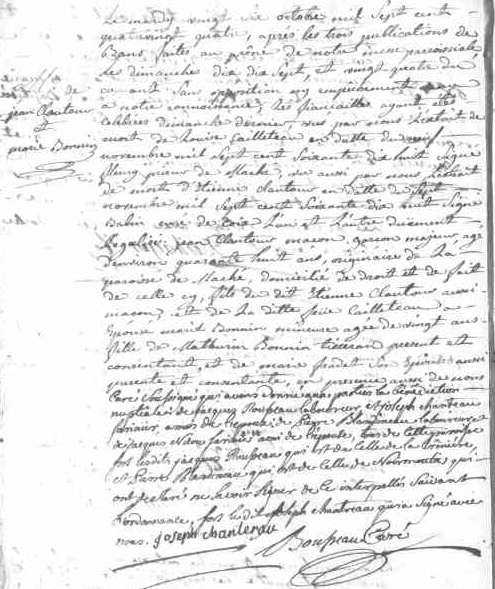 Le mardy vingt six octobre mil sept cent
quatrevingt quatre, après les trois publications de
Bans faites au prône de notre messe paroissiale
les dimanches dix, dix sept, et vingt quatre du
courant sans opposition ny empêchement
à notre connoissance; les fiancailles ayant étés
célébrées dimanche dernier, vus par nous l'extrait de
mort de Louise Cailleteau en datte du neuf
novembre mil sept cent soixante dix huit signé
prieur de Maché, vu aussi par nous l'extrait
de morts d'Etienne Chantour en datte du sept
novembre mil sept cent soixante dix huit signé
Babin curé de l'un et l'autre duëment
légalisé; jean Chantour maçon garcon majeur, agé
d'environ quarante huit ans, originaire de la
paroisse de Maché, domicilié de droit et de fait
de celle cy, fils du dit Etienne Chantour aussi
maçon, et de la ditte feüe Cailleteau a
épousé marie Bonnin mineure agée de vingt ans
fille de Mathurin Bonnin tisseran présent et
consentant, et de marie fradet son épouse aussi
presente et consentante, en presence aussi de nous
Curé soussigné qui avons donné la bénédiction
nuptiale de jacques Roupeau laboureur, et joseph chantreau
de Pierre laboureur
de jacques ami de l'épouse, tous de cette paroisse
fors lesdits jacques Roupeau qui est de celle de la
et Pierre qui est de celle de qui
ont declaré ne savoir signer de ce interpellés suivant
l'ordonnance, fors ledit joseph chantreau qui a signé avec
nous. joseph chantereau
Roupeau Curé
de
jean Chantour
et
marie Bonnin